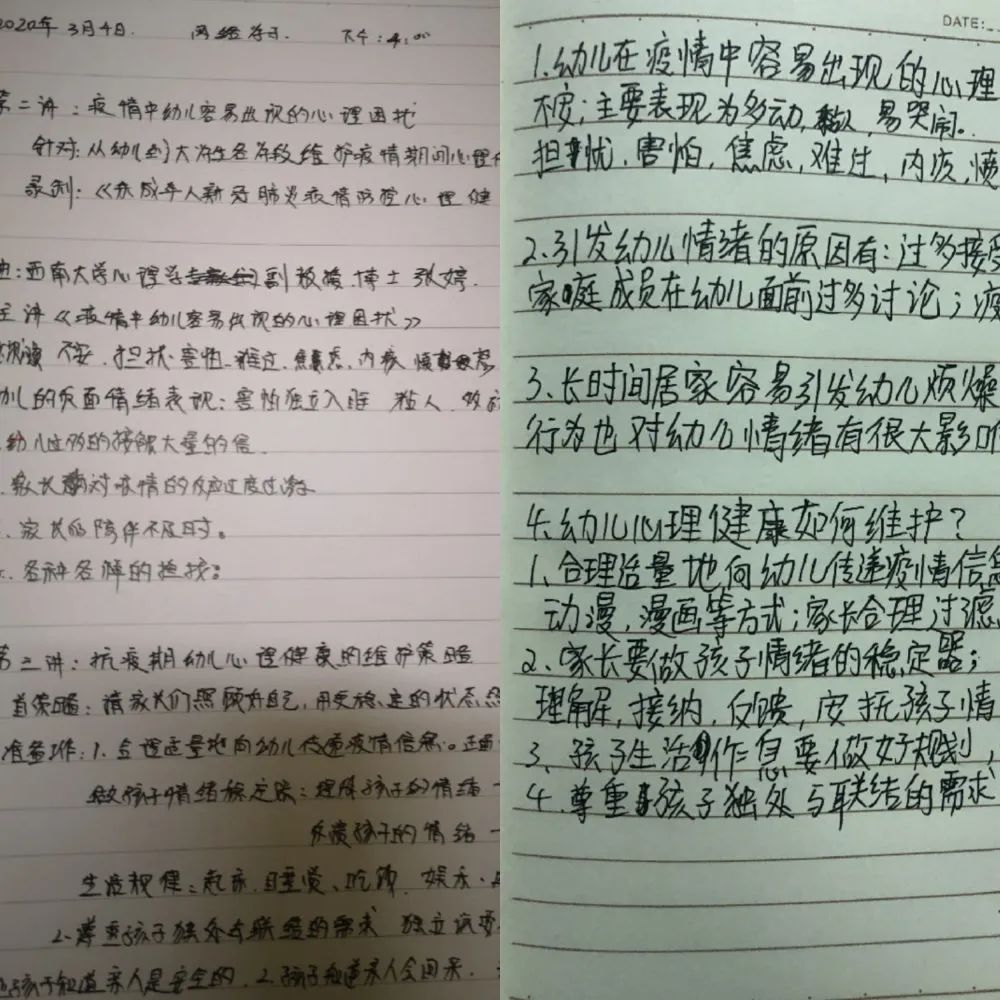 2020年 3月4日. 网络学习. 下午:4:00
第二讲:疫情中幼儿容易出现的心理困扰
针对:从幼儿到大学生各阶段维护疫情期间心理
录制:《未成年人新冠肺炎疫情防控心理健
西南大学心理学 副教授.博士 张婷.
主讲《疫情中幼儿容易出现的心理困扰》
不安.担忧.害怕.难过.焦虑.内疚
幼儿的负面情绪表现:害怕独立入睡 粘人
幼儿过多的接触大量的信
家长 对疫情的反应过度过激
家长的陪伴不及时。
各种各样的
第三讲:抗疫期幼儿心理健康的维护策略
首策略:请家长们照顾好自己,用更稳定的状态
准备工作:1.合理适量地向幼儿传递疫情信息。正面
做孩子情绪稳定器:理解孩子的情绪
反馈孩子的情绪
生活规律:起床.睡觉、吃饭.娱乐.
2.尊重孩子独处与联结的需求 独立
孩子知道亲人是安全的.2.孩子知道亲人会回来.
DATE:
1.幼儿在疫情中容易出现的心理
不安;主要表现为多动,黏人,易哭闹。
担忧,害怕,焦虑,难过,内疚,愤
2.引发幼儿情绪的原因有:过多接受
家庭成员在幼儿面前过多讨论;疫
3.长时间居家容易引发幼儿烦燥
行为也对幼儿情绪有很大影响
4.幼儿心理健康如何维护?
1、合理适量地向幼儿传递疫情信息
动漫,漫画等方式;家长合理过滤
2、家长要做孩子情绪的稳定器;
理解,接纳,反馈,安抚孩子情
3、孩子生活作息要做好规划,
4.尊重孩子独处与联结的需求